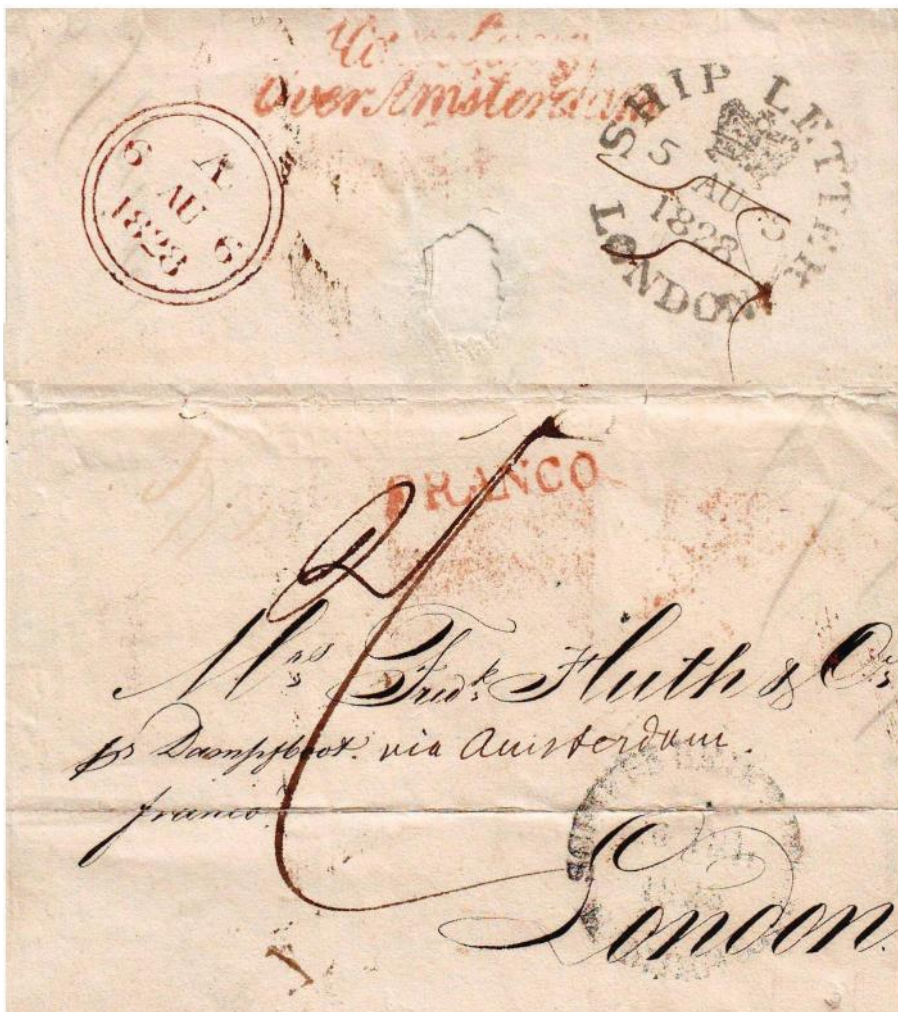 over Amsterdam
A
6 AU 6
1828
SHIP LETTER
5 AU 5
1828
LONDON
FRANCO
2/
Mrs Fredk Huth & Co
pr Dampfboot. via Amsterdam.
franco
London.